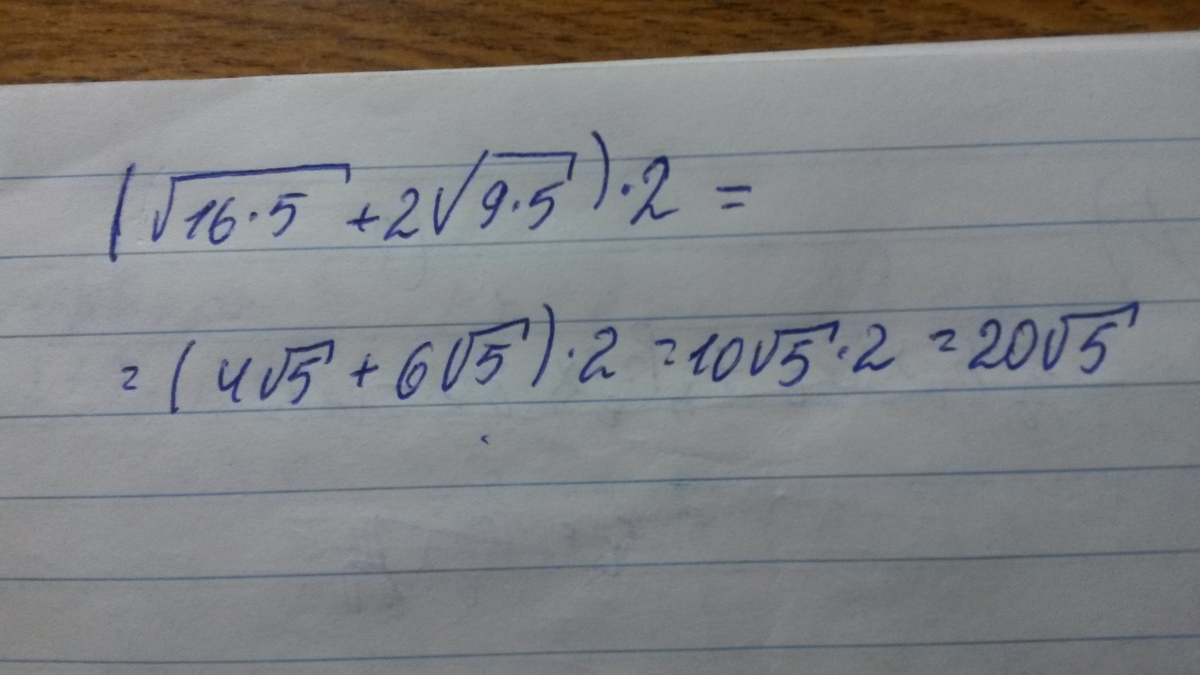 (√16·5 + 2√9·5)·2 =
= (4√5 + 6√5)·2 = 10√5·2 = 20√5